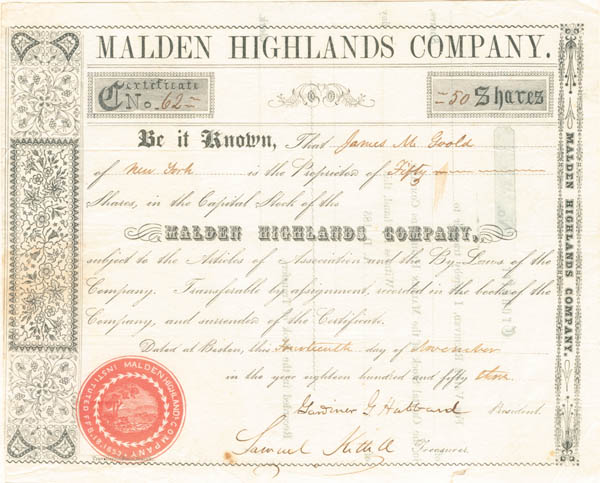 MALDEN HIGHLANDS COMPANY.
Certificate No. 62
50 Shares
Be it Known, That James M. Goold
of New York is the Proprietor of Fifty
Shares, in the Capital Stock of the
MALDEN HIGHLANDS COMPANY,
subject to the Articles of Association and the By-Laws of the
Company. Transferable by assignment, recorded in the books of the
Company, and surrender of the Certificate.
Dated at Boston, this fourteenth day of November
in the year eighteen hundred and fifty three
Gardiner G Hubbard President.
Samuel Treasurer.
MALDEN HIGHLANDS COMPANY.
MALDEN HIGHLANDS COMPANY INSTITUTED